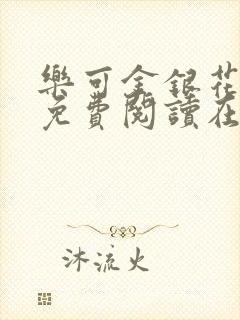 樂可金銀花
免費閱讀在
沐流火